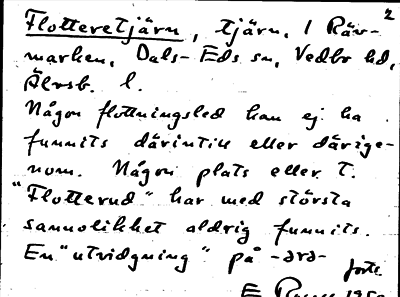 2
Flotteretjärn, tjärn, i Räv-
marken, Dals-Eds sn, Vedbo hd,
Älvsb. l.
Någon flottningsled kan ej ha
funnits därintill eller därige-
nom. Någon plats eller t.
"Flotterud" har med största
sannolikhet aldrig funnits.
En "utvidgning" på -ərə-
forts.
E